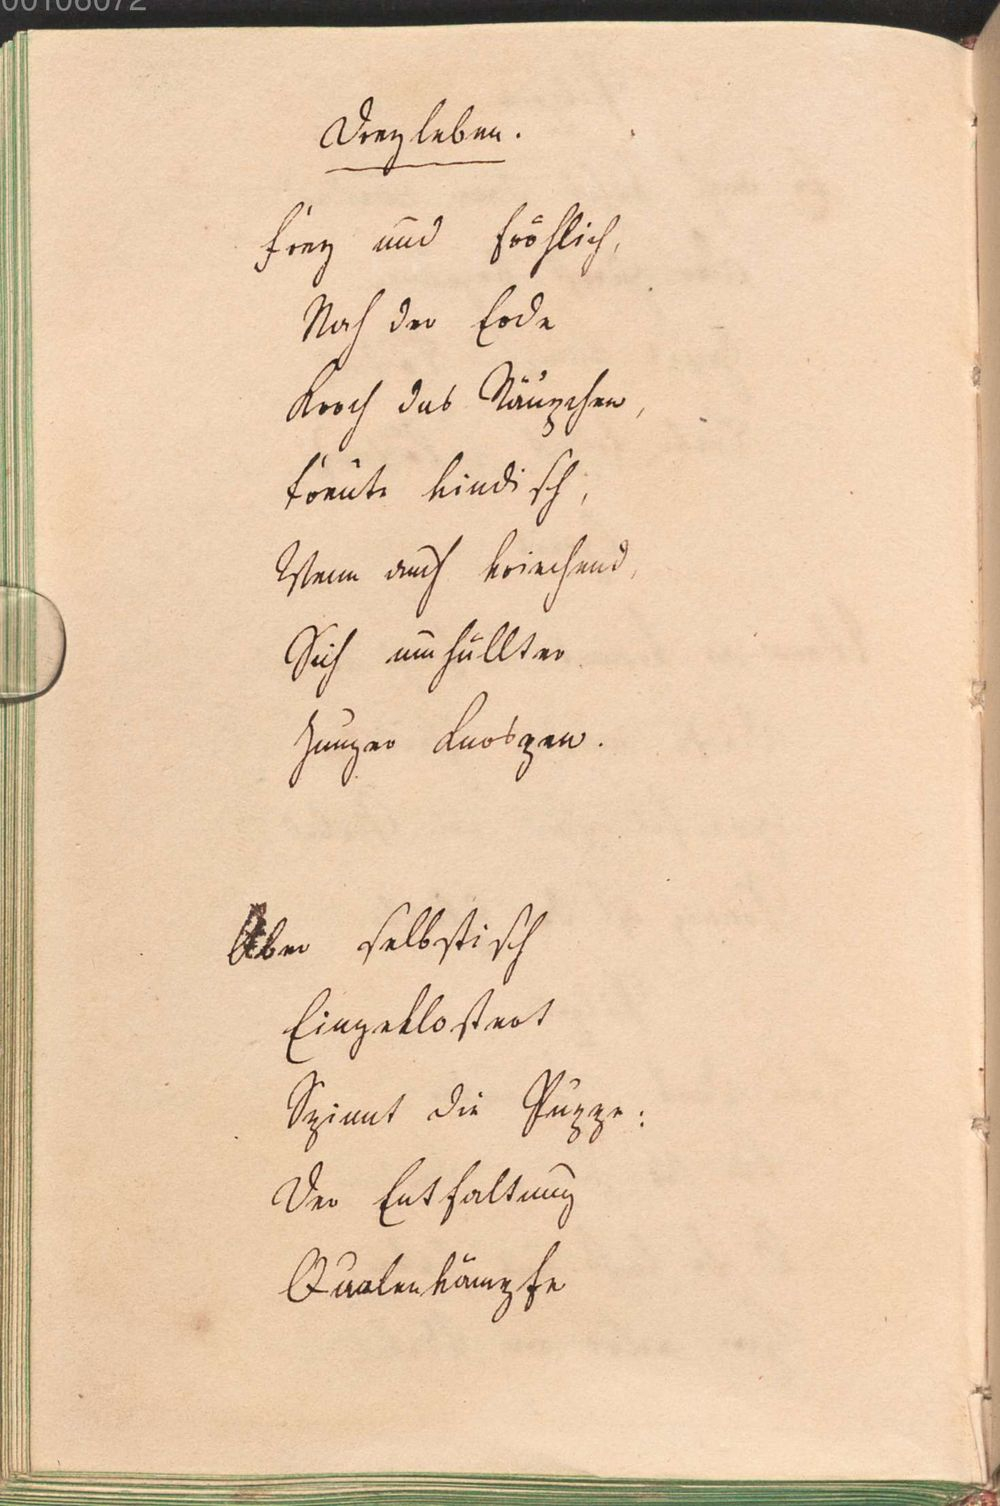 00106072
Dreyleben.
Frey und fröhlich,
Nah der Erde
Kroch das Räupchen,
freute kindisch,
Wenn auch kriechend,
Sich umhüllter
Junger Knospen.
Aber selbstisch
Eingeklostert
Spinnt die Puppe:
Der Entfaltung
Qualenkämpfe